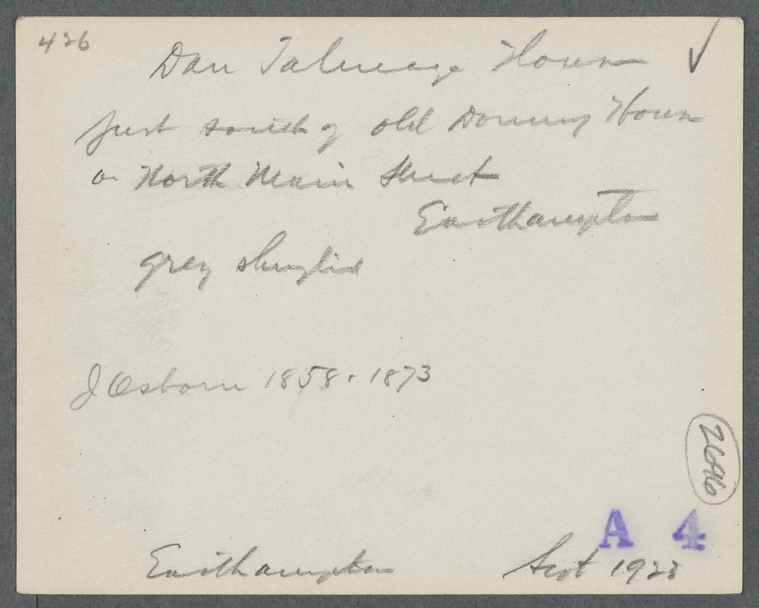 426
Dan Talmage House
Just south of old Dominy House
on North Main Street
Easthampton
grey shingled
J Osborn 1858-1873
2696
A 4
Easthampton Sept 1923